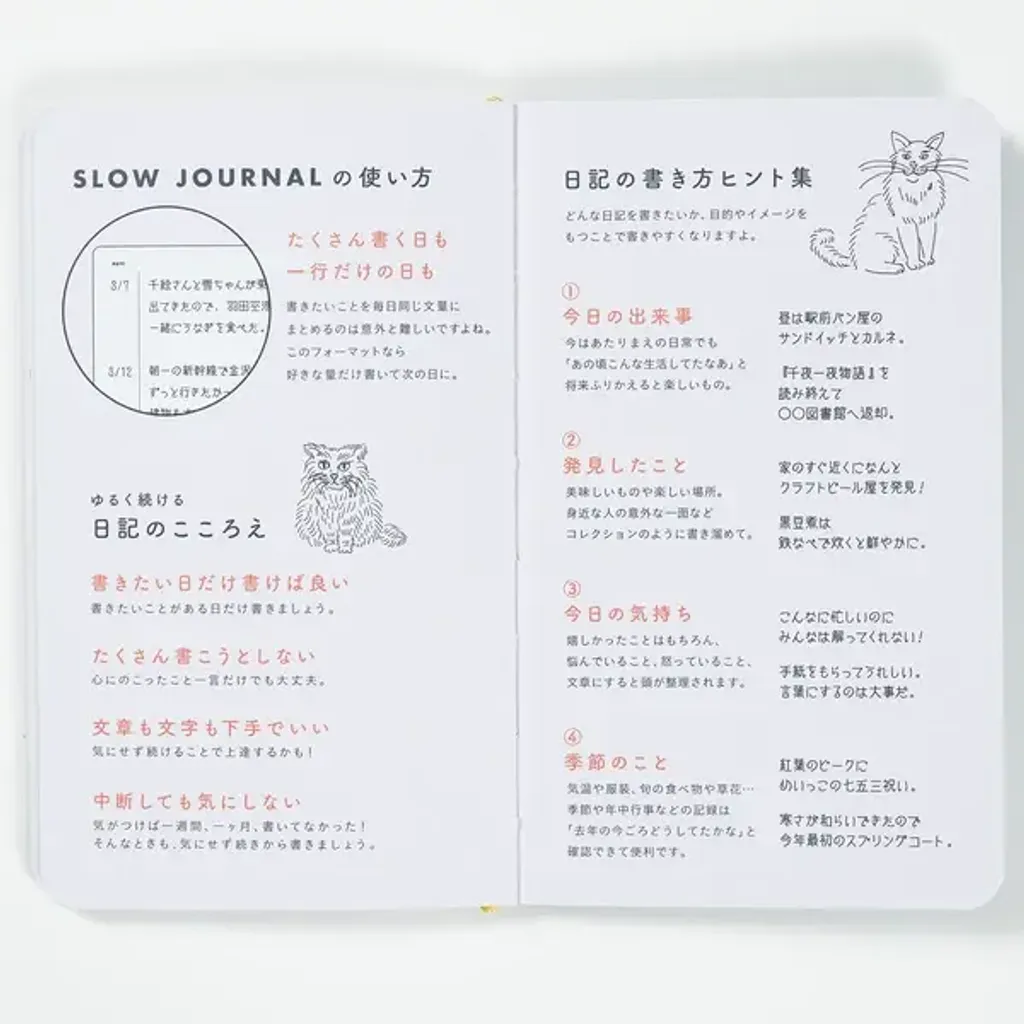 SLOW JOURNALの使い方
たくさん書く日も
一行だけの日も
書きたいことを毎日同じ文量に
まとめるのは意外と難しいですよね。
このフォーマットなら
好きな量だけ書いて次の日に。
DATE
3/7 千絵さんと雪ちゃんが
出てきたので、羽田空港
一緒にうなぎを食べた。
3/12 朝一の新幹線で金沢
ずっと行きたか
ゆるく続ける
日記のこころえ
書きたい日だけ書けば良い
書きたいことがある日だけ書きましょう。
たくさん書こうとしない
心にのこったこと一言だけでも大丈夫。
文章も文字も下手でいい
気にせず続けることで上達するかも!
中断しても気にしない
気がつけば一週間、一ヶ月、書いてなかった!
そんなときも、気にせず続きから書きましょう。
日記の書き方ヒント集
どんな日記を書きたいか、目的やイメージを
もつことで書きやすくなりますよ。
①
今日の出来事
今はあたりまえの日常でも
「あの頃こんな生活してたなあ」と
将来ふりかえると楽しいもの。
昼は駅前パン屋の
サンドイッチとカルネ。
『千夜一夜物語』を
読み終えて
〇〇図書館へ返却。
②
発見したこと
美味しいものや楽しい場所。
身近な人の意外な一面など
コレクションのように書き溜めて。
家のすぐ近くになんと
クラフトビール屋を発見!
黒豆煮は
鉄なべで炊くと鮮やかに。
③
今日の気持ち
嬉しかったことはもちろん、
悩んでいること、怒っていること、
文章にすると頭が整理されます。
こんなに忙しいのに
みんなは解ってくれない!
手紙をもらってうれしい。
言葉にするのは大事だ。
④
季節のこと
気温や服装、旬の食べ物や草花…
季節や年中行事などの記録は
「去年の今ごろどうしてたかな」と
確認できて便利です。
紅葉のピークに
めいっこの七五三祝い。
寒さが和らいできたので
今年最初のスプリングコート。